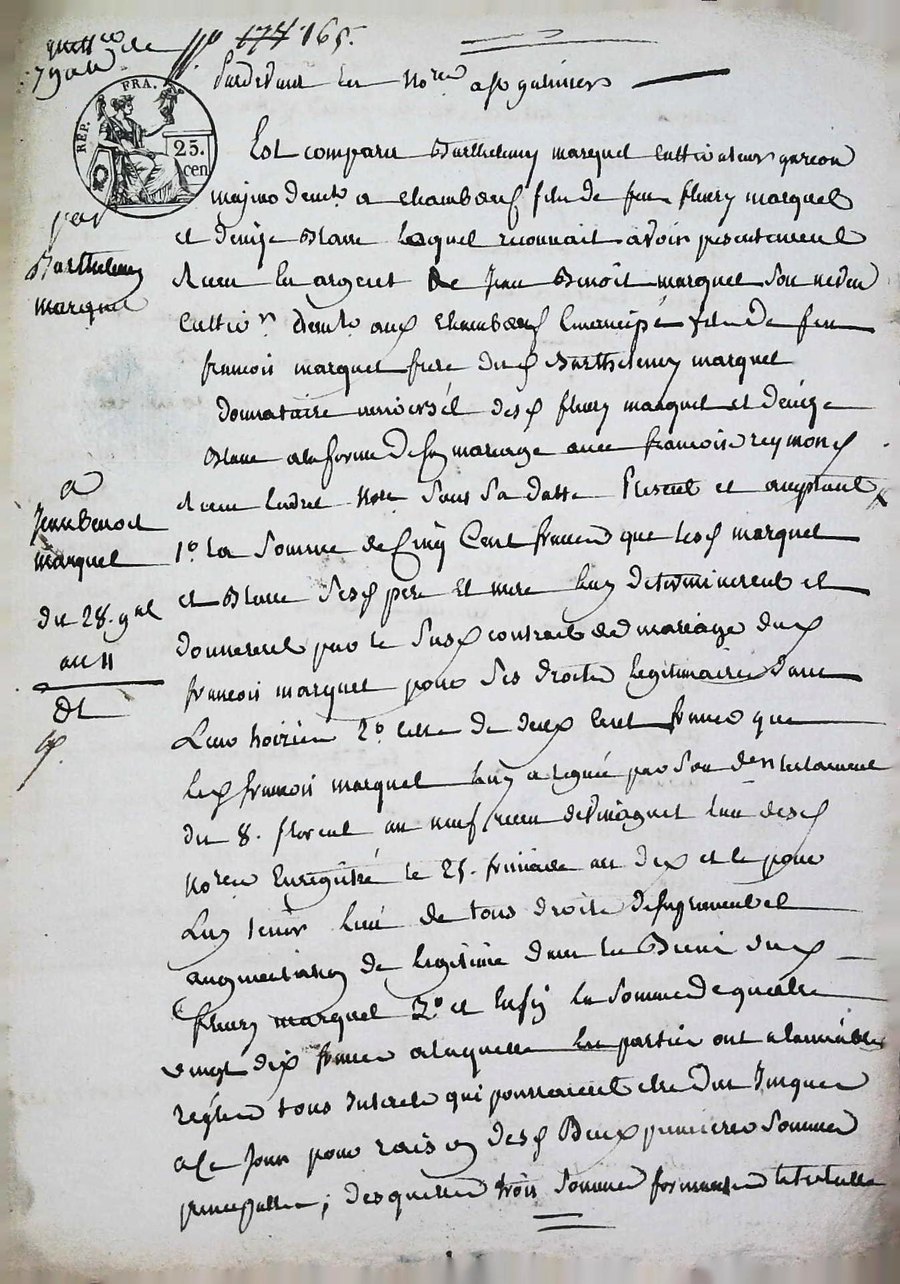 quittce de
790 #
n° 174 165.
REP. FRA.
25.
cen
Pardevant les nores a St galmier
Est comparu Barthelemy marquet cultivateur garcon
majeur demt a chambœuf fils de feu fleury marquet
et denize Blanc lequel reconnait avoir presentement
par
Barthelemy
marquet
Recu en argent de Jean Benoit marquet son neveu
cultivr demt aux chambœuf Emancipé fils de feu
francois marquet frere dud Barthelemy marquet
donnataire universel desd fleury marquet et denize
Blanc a la forme de son mariage avec francoise reymond
Recu Ledit Nore sous sa datte Present et acceptant
a
Jean Benoit
marquet
du 28. 9bre
an 11
1° La somme de Cinq Cent francs que lesd marquet
et Blanc sesd pere et mere luy determinerent et
donnerent par le susd contrat de mariage dud
francois marquet pour ses droits legitimaires dans
Leur hoirie 2° celle de deux cent francs que
led francois marquet luy a leguée par son testament
du 8. floreal an neuf recu l'un desd
Nores Enregistré le 25. frimaire an dix et le pour
Luy tenir lieu de tous droits de supplement et
augmentation de legitime dans les Biens dud
fleury marquet 3° et enfin la somme de quatre
vingt dix francs a laquelle les parties ont a l'amiable
reglés tous interets qui pourraient etre dus Jusques
a ce Jour pour raison desd Deux premieres sommes
principalles; desquelles trois sommes formant la totalle